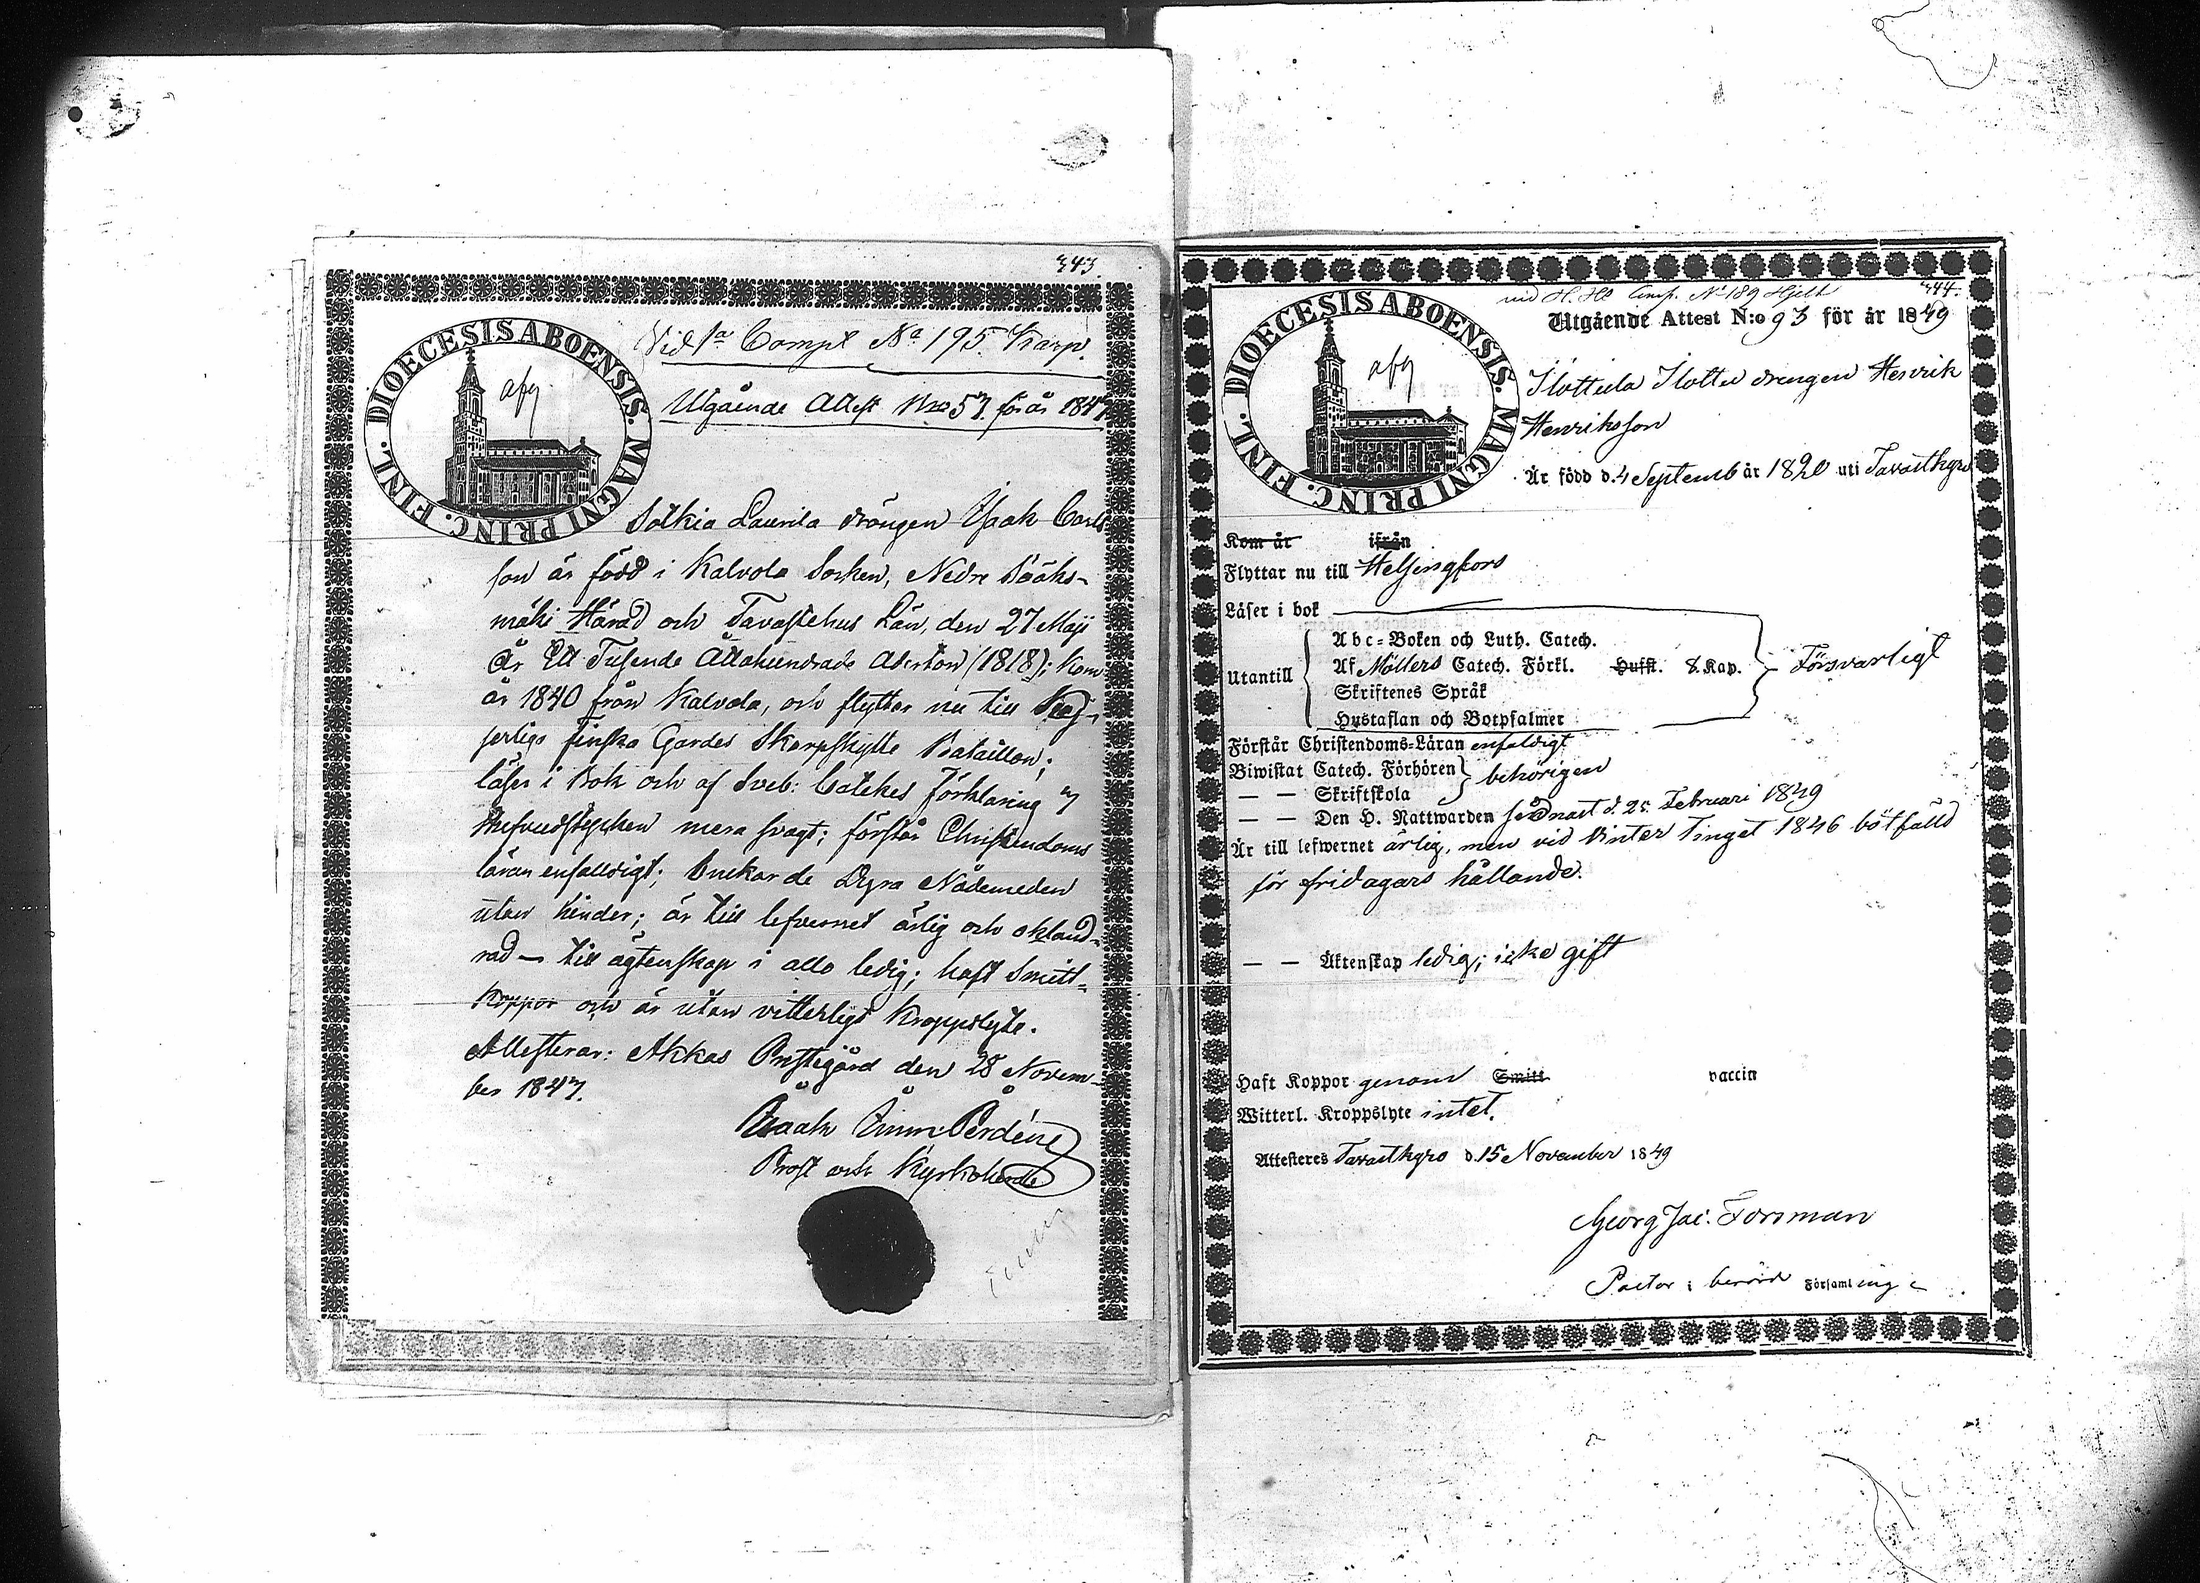 343.
DIOECESIS ABOENSIS. MAGNI PRINC. FINL.
afg
Vid 1a Compt No 195. Karp.
Utgående Attest Nro 57. för år 1847
Sotkia Laurila drängen Isaak Carls
son är född i Kalvola Socken, Nedre Sääks-
mäki Härad och Tavastehus Län, den 27 Maji
År Ett Tusende Åttahundrade Aderton (1818); Kom
år 1840 från Kalvola, och flyttar nu till Kej-
serliga finska Gardes Skarpskytte Bataillon;
läser i Bok och af Sveb: Catekes Förklaring
Hufvudstycken mera svagt; förstår Christendoms
läran enfalldigt; brukar de Dyra Nådemeden
utan hinder; är till lefvernet ärlig och okland-
rad — till ägtenskap i allo ledig; haft Smitt-
Koppor och är utan vitterligt Kroppslyte.
Attesterar: Akkas Prestgård den 28 Novem-
ber 1847.
Isaak Emm: Perdén
Prost och Kyrkoherde
344.
vid H. Hs Comp. No 189 Hjelt
DIOECESIS ABOENSIS. MAGNI PRINC. FINL.
afg
Utgående Attest N:o 93 för år 1849
Ilottula Ilottu drengen Henrik
Henriksson
Är född d. 4 Septemb år 1820 uti Tavastkyro
Kom år ifrån
Flyttar nu till Helsingfors
Läser i bok
Utantill
Abc-Boken och Luth. Catech.
Af Möllers Catech. Förkl. Hufst. 8. Kap. Försvarligt
Skriftenes Språk
Hustaflan och Botpsalmer
Förstår Christendoms-Läran enfaldigt
Biwistat Catech. Förhören behörigen
— — Skriftskola
— — Den H. Nattwarden sednast d. 25 Februari 1849
Är till lefwernet ärlig, men vid Vinter Tinget 1846 bötfälld
för fridagars hållande.
— — Äktenskap ledig, icke gift
Haft Koppor genom Smitt vaccin
Witterl. Kroppslyte intet.
Attesteres Tavastkyro d. 15 November 1849
Georg Jac: Forsman
Pastor i berörd Församling